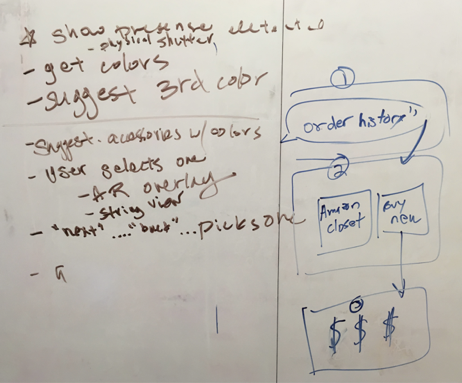 * show presense detected
- physical shutter
- get colors
- suggest 3rd color
- suggest accesories w/ colors
- User selects one
- AR overlay
- string view
- "next" .... "back" ... picks one
-
①
"order history"
②
Amazon closet
Buy new
③
$ $ $